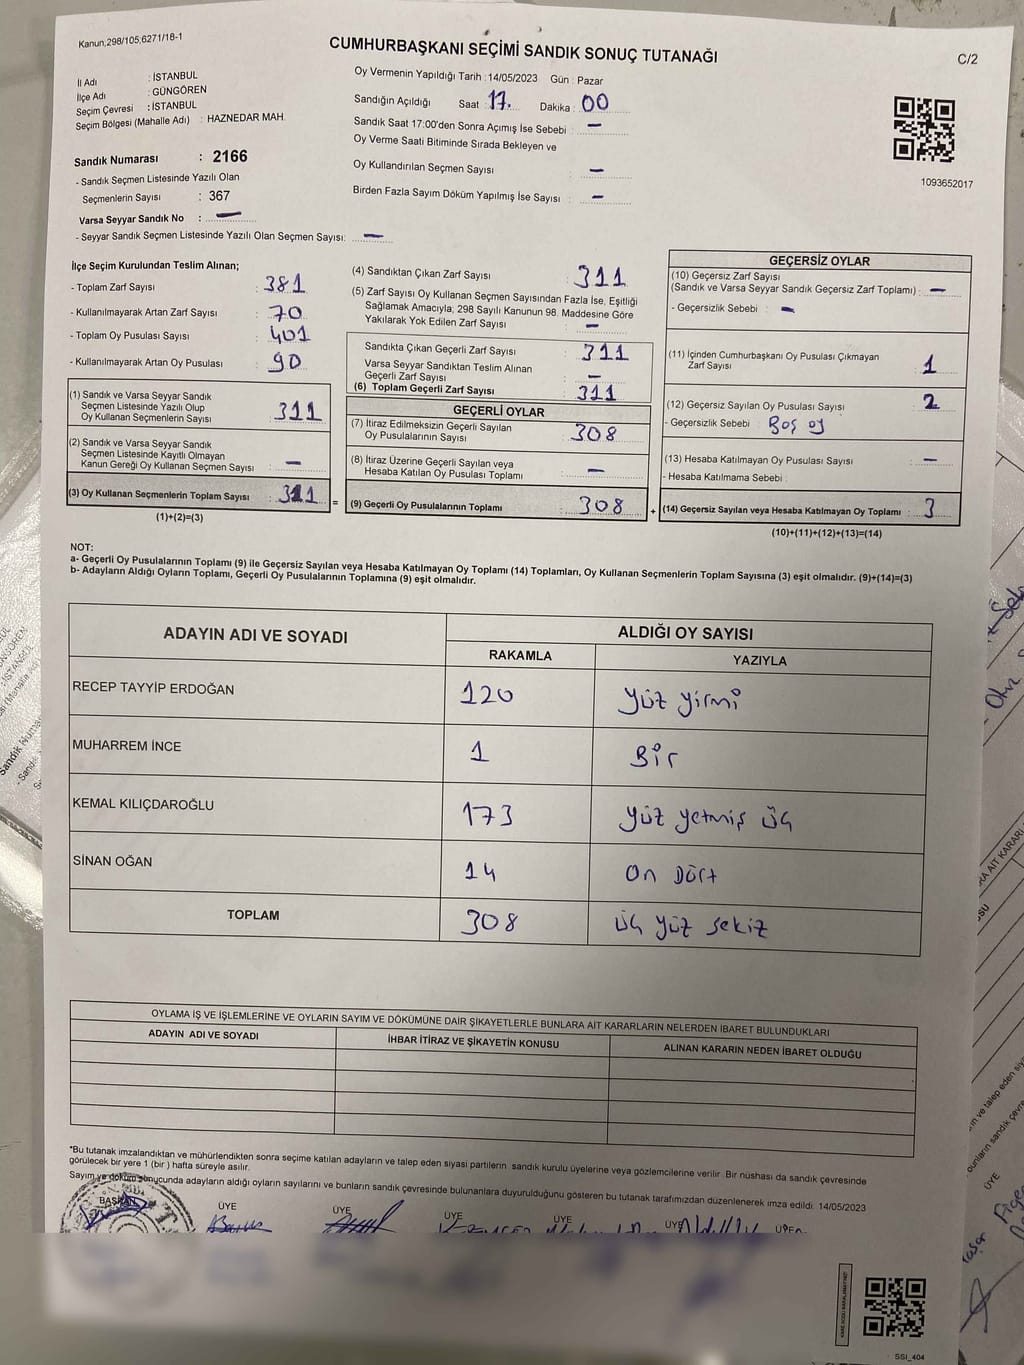 Kanun,298/105;6271/18-1
CUMHURBAŞKANI SEÇİMİ SANDIK SONUÇ TUTANAĞI
C/2
İl Adı : İSTANBUL
İlçe Adı : GÜNGÖREN
Seçim Çevresi : İSTANBUL
Seçim Bölgesi (Mahalle Adı) : HAZNEDAR MAH.
Oy Vermenin Yapıldığı Tarih :14/05/2023 Gün : Pazar
Sandığın Açıldığı Saat : 17. Dakika : 00
Sandık Saat 17:00'den Sonra Açımış İse Sebebi : —
Oy Verme Saati Bitiminde Sırada Bekleyen ve
Oy Kullandırılan Seçmen Sayısı : —
Birden Fazla Sayım Döküm Yapılmış İse Sayısı : —
1093652017
Sandık Numarası : 2166
- Sandık Seçmen Listesinde Yazılı Olan
Seçmenlerin Sayısı : 367
Varsa Seyyar Sandık No : —
- Seyyar Sandık Seçmen Listesinde Yazılı Olan Seçmen Sayısı: —
İlçe Seçim Kurulundan Teslim Alınan;
- Toplam Zarf Sayısı : 381
- Kullanılmayarak Artan Zarf Sayısı : 70
- Toplam Oy Pusulası Sayısı : 401
- Kullanılmayarak Artan Oy Pusulası : 90
(1) Sandık ve Varsa Seyyar Sandık
Seçmen Listesinde Yazılı Olup
Oy Kullanan Seçmenlerin Sayısı : 311
(2) Sandık ve Varsa Seyyar Sandık
Seçmen Listesinde Kayıtlı Olmayan
Kanun Gereği Oy Kullanan Seçmen Sayısı : —
(3) Oy Kullanan Seçmenlerin Toplam Sayısı : 311
(1)+(2)=(3)
(4) Sandıktan Çıkan Zarf Sayısı : 311
(5) Zarf Sayısı Oy Kullanan Seçmen Sayısından Fazla İse, Eşitliği
Sağlamak Amacıyla; 298 Sayılı Kanunun 98. Maddesine Göre
Yakılarak Yok Edilen Zarf Sayısı : —
Sandıkta Çıkan Geçerli Zarf Sayısı : 311
Varsa Seyyar Sandıktan Teslim Alınan
Geçerli Zarf Sayısı : —
(6) Toplam Geçerli Zarf Sayısı : 311
GEÇERLİ OYLAR
(7) İtiraz Edilmeksizin Geçerli Sayılan
Oy Pusulalarının Sayısı : 308
(8) İtiraz Üzerine Geçerli Sayılan veya
Hesaba Katılan Oy Pusulası Toplamı : —
= (9) Geçerli Oy Pusulalarının Toplamı : 308
GEÇERSİZ OYLAR
(10) Geçersiz Zarf Sayısı
(Sandık ve Varsa Seyyar Sandık Geçersiz Zarf Toplamı) : —
- Geçersizlik Sebebi : —
(11) İçinden Cumhurbaşkanı Oy Pusulası Çıkmayan
Zarf Sayısı : 1
(12) Geçersiz Sayılan Oy Pusulası Sayısı : 2
- Geçersizlik Sebebi : Boş oy
(13) Hesaba Katılmayan Oy Pusulası Sayısı : —
- Hesaba Katılmama Sebebi :
+ (14) Geçersiz Sayılan veya Hesaba Katılmayan Oy Toplamı : 3
(10)+(11)+(12)+(13)=(14)
NOT:
a- Geçerli Oy Pusulalarının Toplamı (9) ile Geçersiz Sayılan veya Hesaba Katılmayan Oy Toplamı (14) Toplamları, Oy Kullanan Seçmenlerin Toplam Sayısına (3) eşit olmalıdır. (9)+(14)=(3)
b- Adayların Aldığı Oyların Toplamı, Geçerli Oy Pusulalarının Toplamına (9) eşit olmalıdır.
ADAYIN ADI VE SOYADI ALDIĞI OY SAYISI
RAKAMLA YAZIYLA
RECEP TAYYİP ERDOĞAN 120 yüz yirmi
MUHARREM İNCE 1 Bir
KEMAL KILIÇDAROĞLU 173 yüz yetmiş üç
SİNAN OĞAN 14 on Dört
TOPLAM 308 üç yüz sekiz
OYLAMA İŞ VE İŞLEMLERİNE VE OYLARIN SAYIM VE DÖKÜMÜNE DAİR ŞİKAYETLERLE BUNLARA AİT KARARLARIN NELERDEN İBARET BULUNDUKLARI
ADAYIN ADI VE SOYADI İHBAR İTİRAZ VE ŞİKAYETİN KONUSU ALINAN KARARIN NEDEN İBARET OLDUĞU
*Bu tutanak imzalandıktan ve mühürlendikten sonra seçime katılan adayların ve talep eden siyasi partilerin sandık kurulu üyelerine veya gözlemcilerine verilir. Bir nüshası da sandık çevresinde
görülecek bir yere 1 (bir) hafta süreyle asılır.
Sayım ve döküm sonucunda adayların aldığı oyların sayılarını ve bunların sandık çevresinde bulunanlara duyurulduğunu gösteren bu tutanak tarafımızdan düzenlenerek imza edildi. 14/05/2023
BAŞKAN ÜYE ÜYE ÜYE ÜYE ÜYE ÜYE
SSİ_404